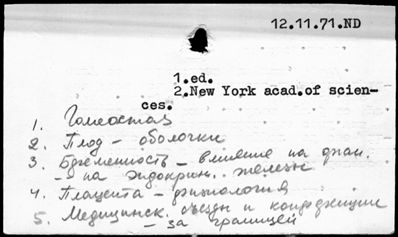 12.11.71.ND
1.ed.
2.New York acad.of scien-
ces.
1. Гомеостаз
2. Плод - оболочки
3. Беременность - влияние на физи.
- на эндокрин. железы
4. Плацента - физиология
5. Медицинск. съезды и конференции
- за границей